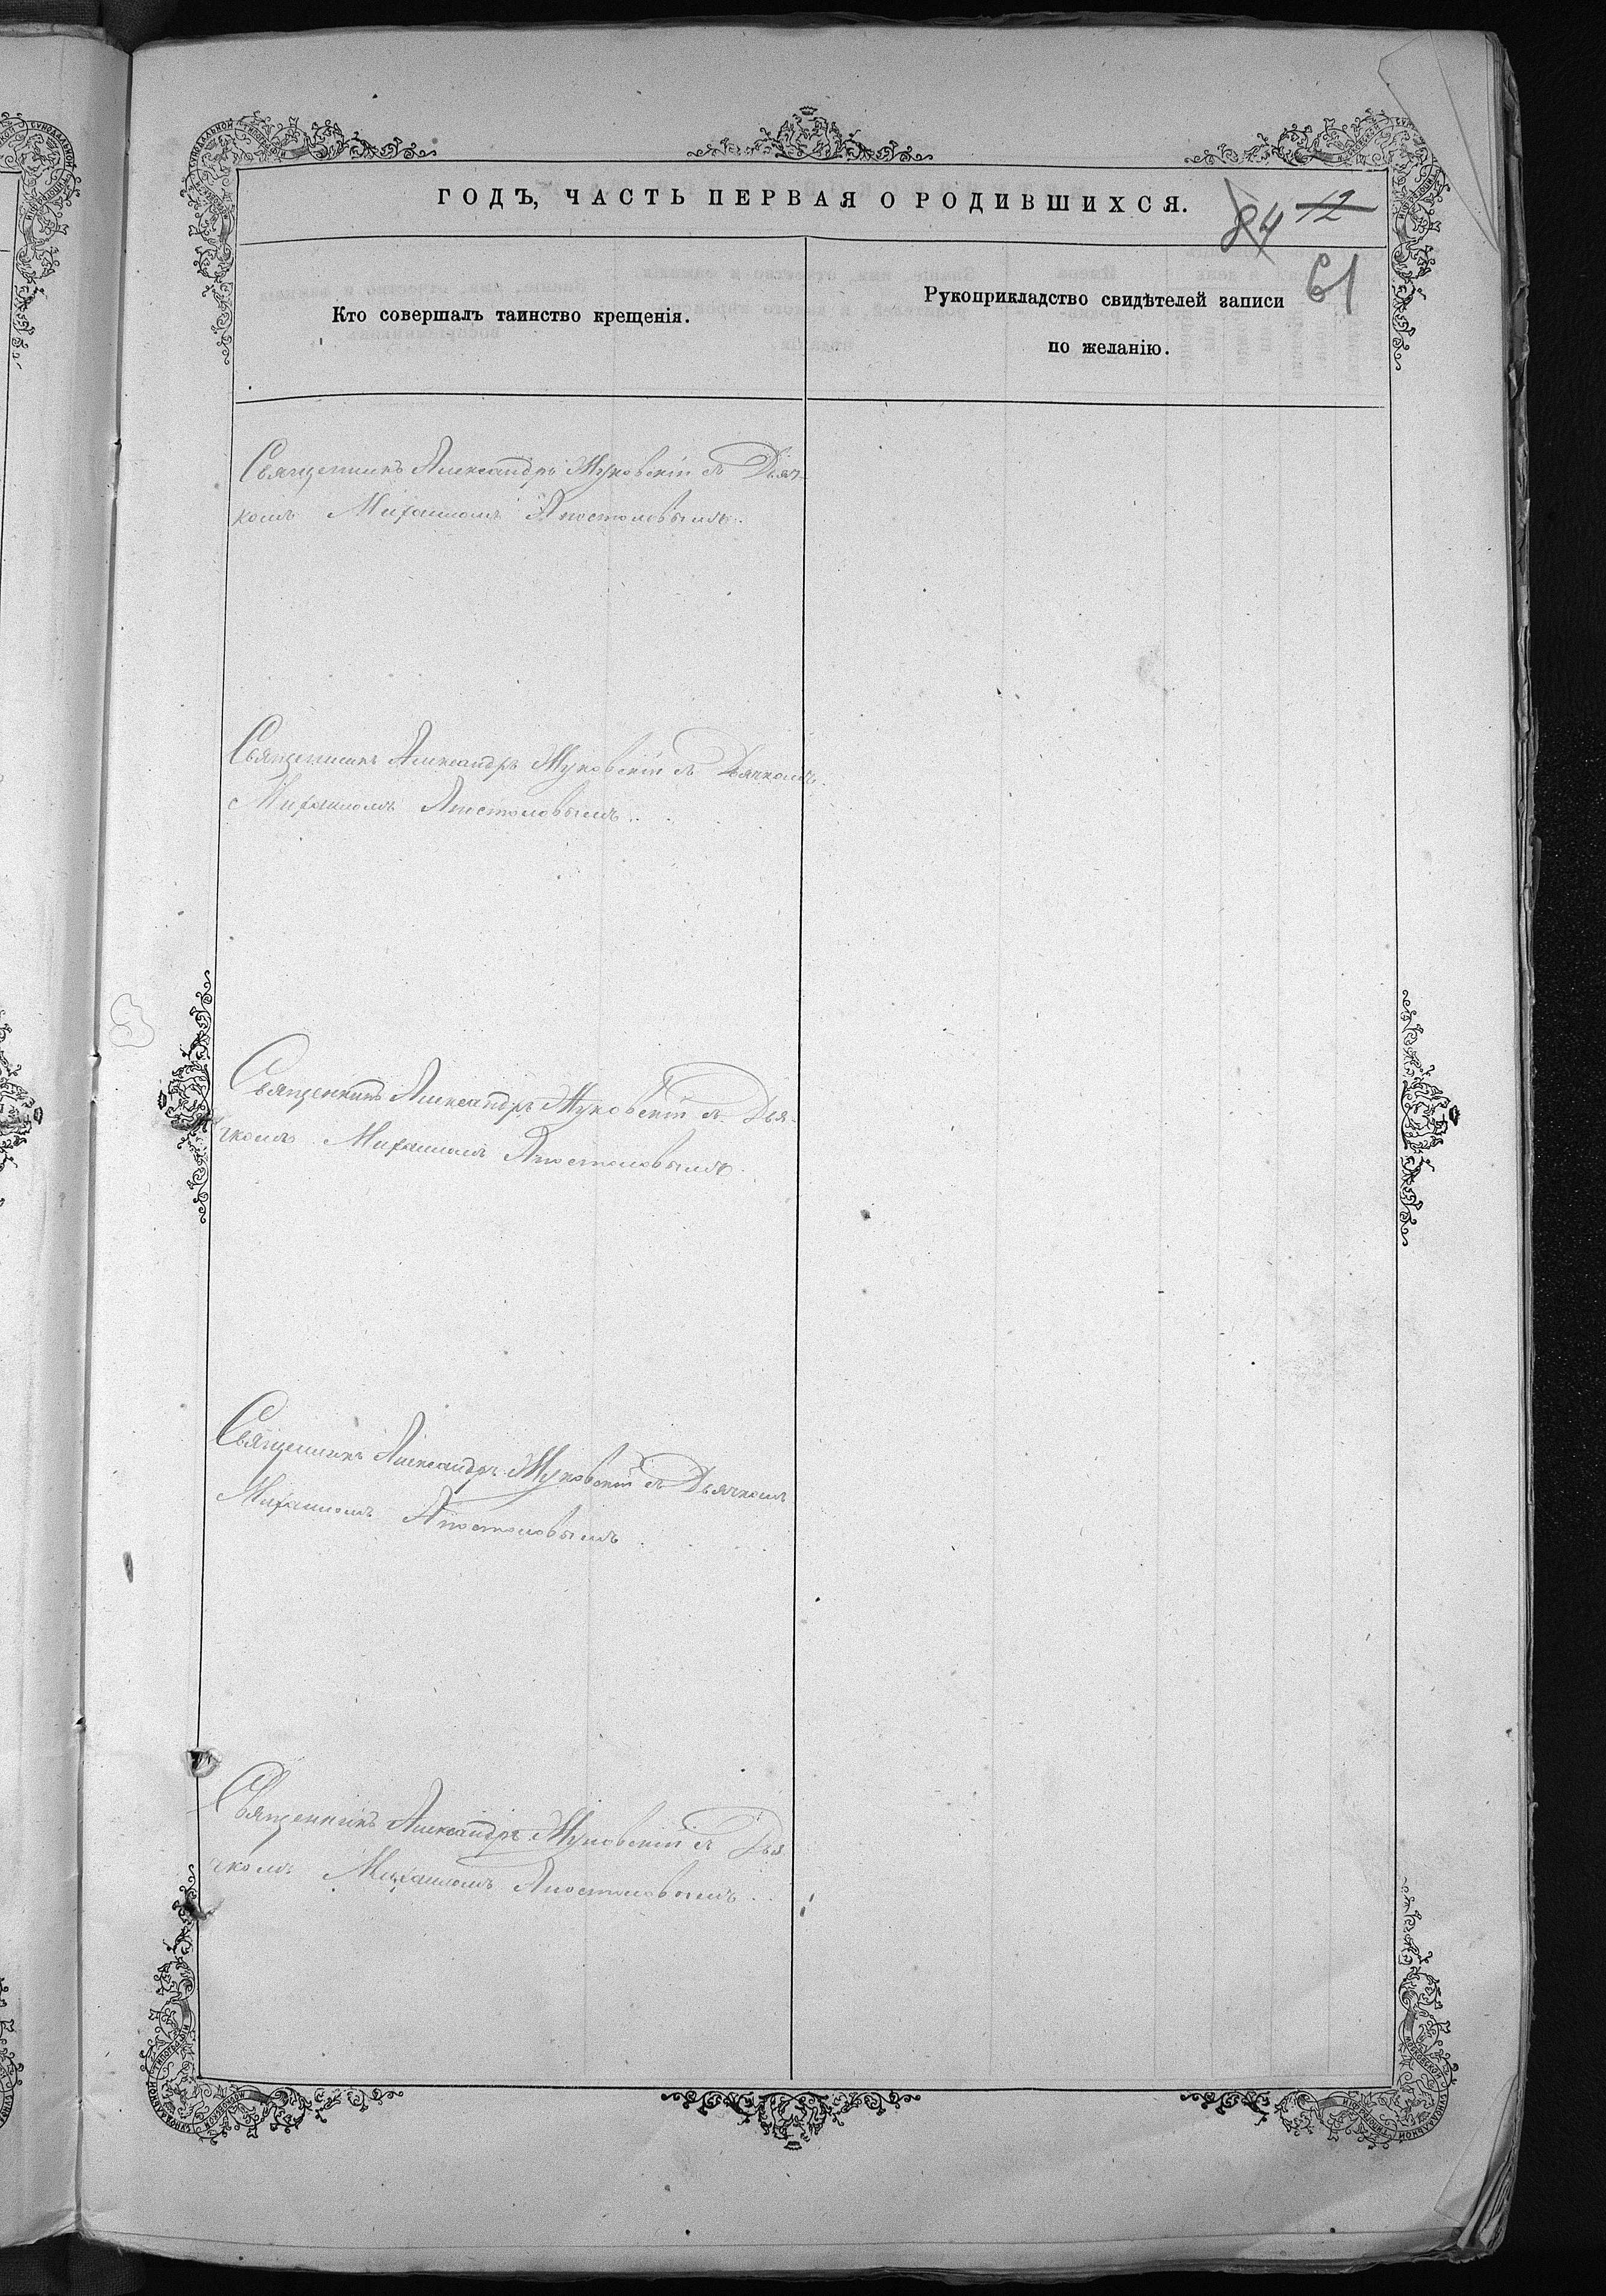 ГОДЪ, ЧАСТЬ ПЕРВАЯ О РОДИВШИХСЯ.
84 12
61
Кто совершалъ таинство крещенія.
Рукоприкладство свидѣтелей записи
по желанію.
Священникъ Александръ Жуковскій съ Дьяч-
комъ Михаиломъ Апостоловымъ.
Священникъ Александръ Жуковскій съ Дьячкомъ
Михаиломъ Апостоловымъ.
Священникъ Александръ Жуковскій съ Дья-
чкомъ Михаиломъ Апостоловымъ.
Священникъ Александръ Жуковскій съ Дьячкомъ
Михаиломъ Апостоловымъ.
Священникъ Александръ Жуковскій съ Дья
чкомъ Михаиломъ Апостоловымъ.